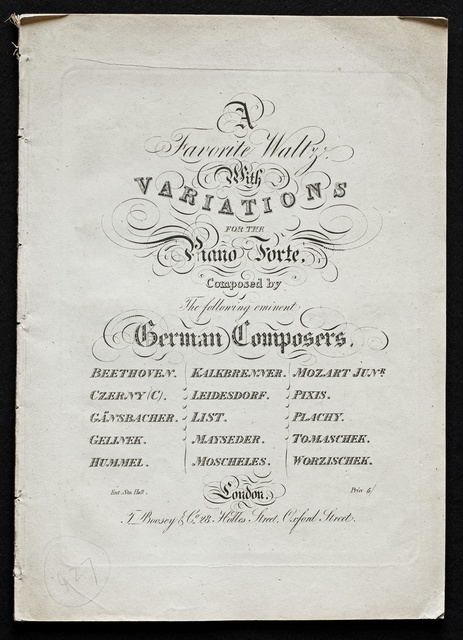 A
Favorite Waltz,
With
VARIATIONS
FOR THE
Piano Forte,
Composed by
The following eminent
German Composers.
BEETHOVEN. KALKBRENNER. MOZART JUNR.
CZERNY (C). LEIDESDORF. PIXIS.
GÄNSBACHER. LIST. PLACHY.
GELINEK. MAYSEDER. TOMASCHEK.
HUMMEL. MOSCHELES. WORZISCHEK.
Ent. Sta. Hall. London, Price 5/
T. Boosey & Co. 28. Holles Street, Oxford Street.
927